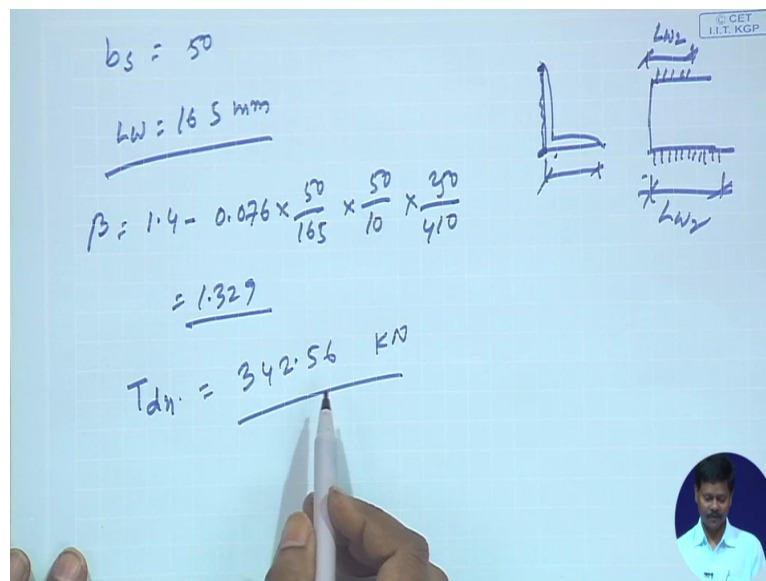 © CET
I.I.T. KGP
bs = 50
Lw = 165 mm
β = 1.4 - 0.076 × 50/165 × 50/10 × 250/410
= 1.329
Tdn. = 342.56 KN
Lw2
Lw2